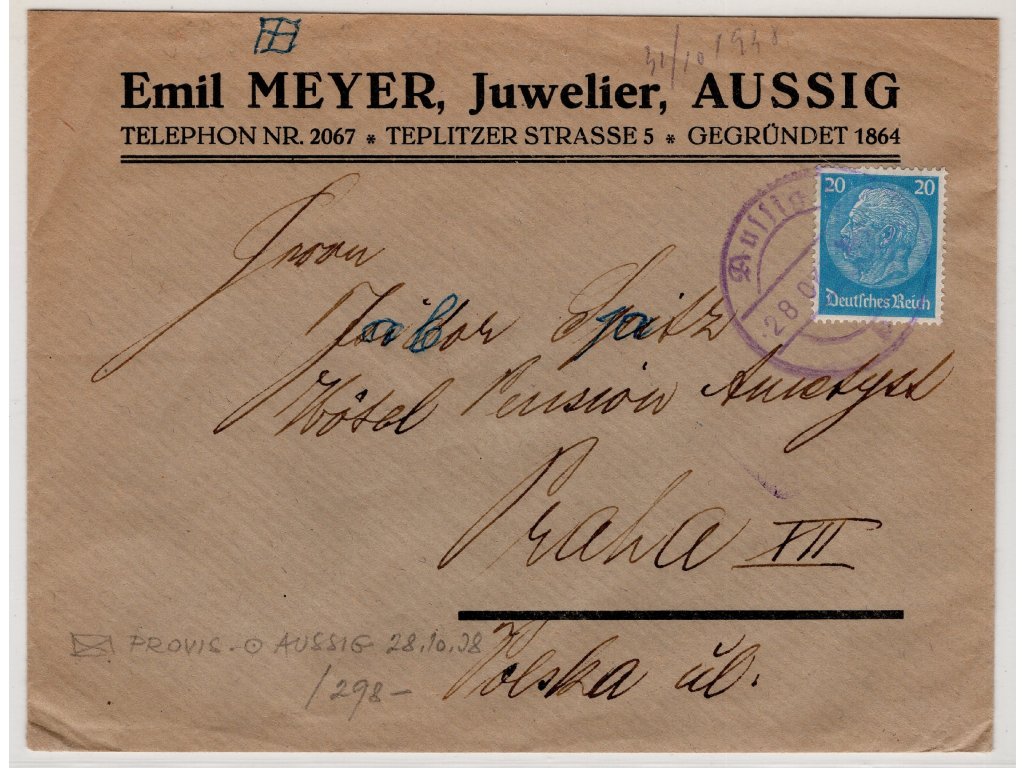 31/10 1938
Emil MEYER, Juwelier, AUSSIG
TELEPHON NR. 2067 * TEPLITZER STRASSE 5 * GEGRÜNDET 1864
20 20
Deutsches Reich
Aussig
28.
Herrn
Jakbor Spitz
Hôtel Pension Ametyst
Praha VII
PROVIS. AUSSIG 28.10.38
/298-
Polska ul.